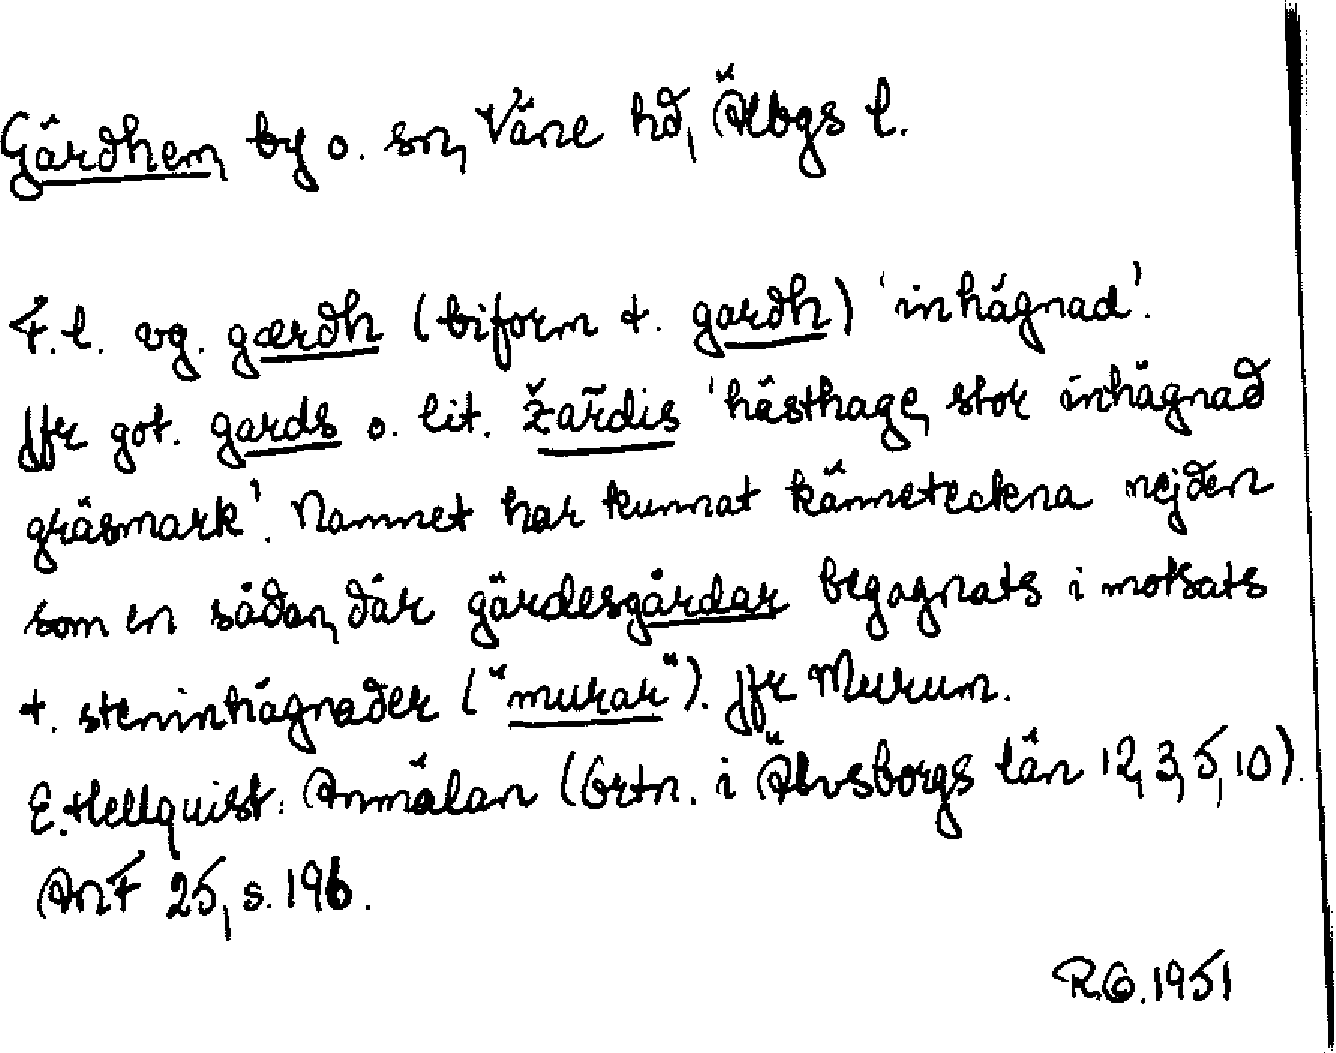 Gärdhem, by o. sn, Väne hd, Älbgs l.
F.l. vg. gærdh (biform t. gardh) 'inhägnad'.
Jfr got. gards o. lit. žar̃dis 'hästhage, stor inhägnad
gräsmark'. Namnet har kunnat känneteckna nejden
som en sådan, där gärdesgårdar begagnats i motsats
t. steninhägnader ("murar"). Jfr Murum.
E. Hellquist: Anmälan (Ortn. i Älvsborgs län 12, 3, 5, 10).
ANF 25, s. 196.
R.G. 1951